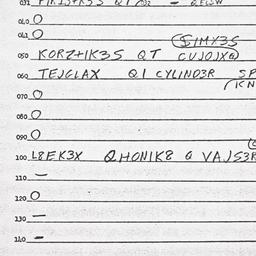 040 O
041 O
SIMX3S
050 KORZ+IK3S QT CUJOJXQ
060 TEJGLAX QI CYLINO3R SP
KN
070 O
080 O
090 O
100 L8EK3X QHONIK8 Q VAJS3R
110 –
120 O
130 –
140 –